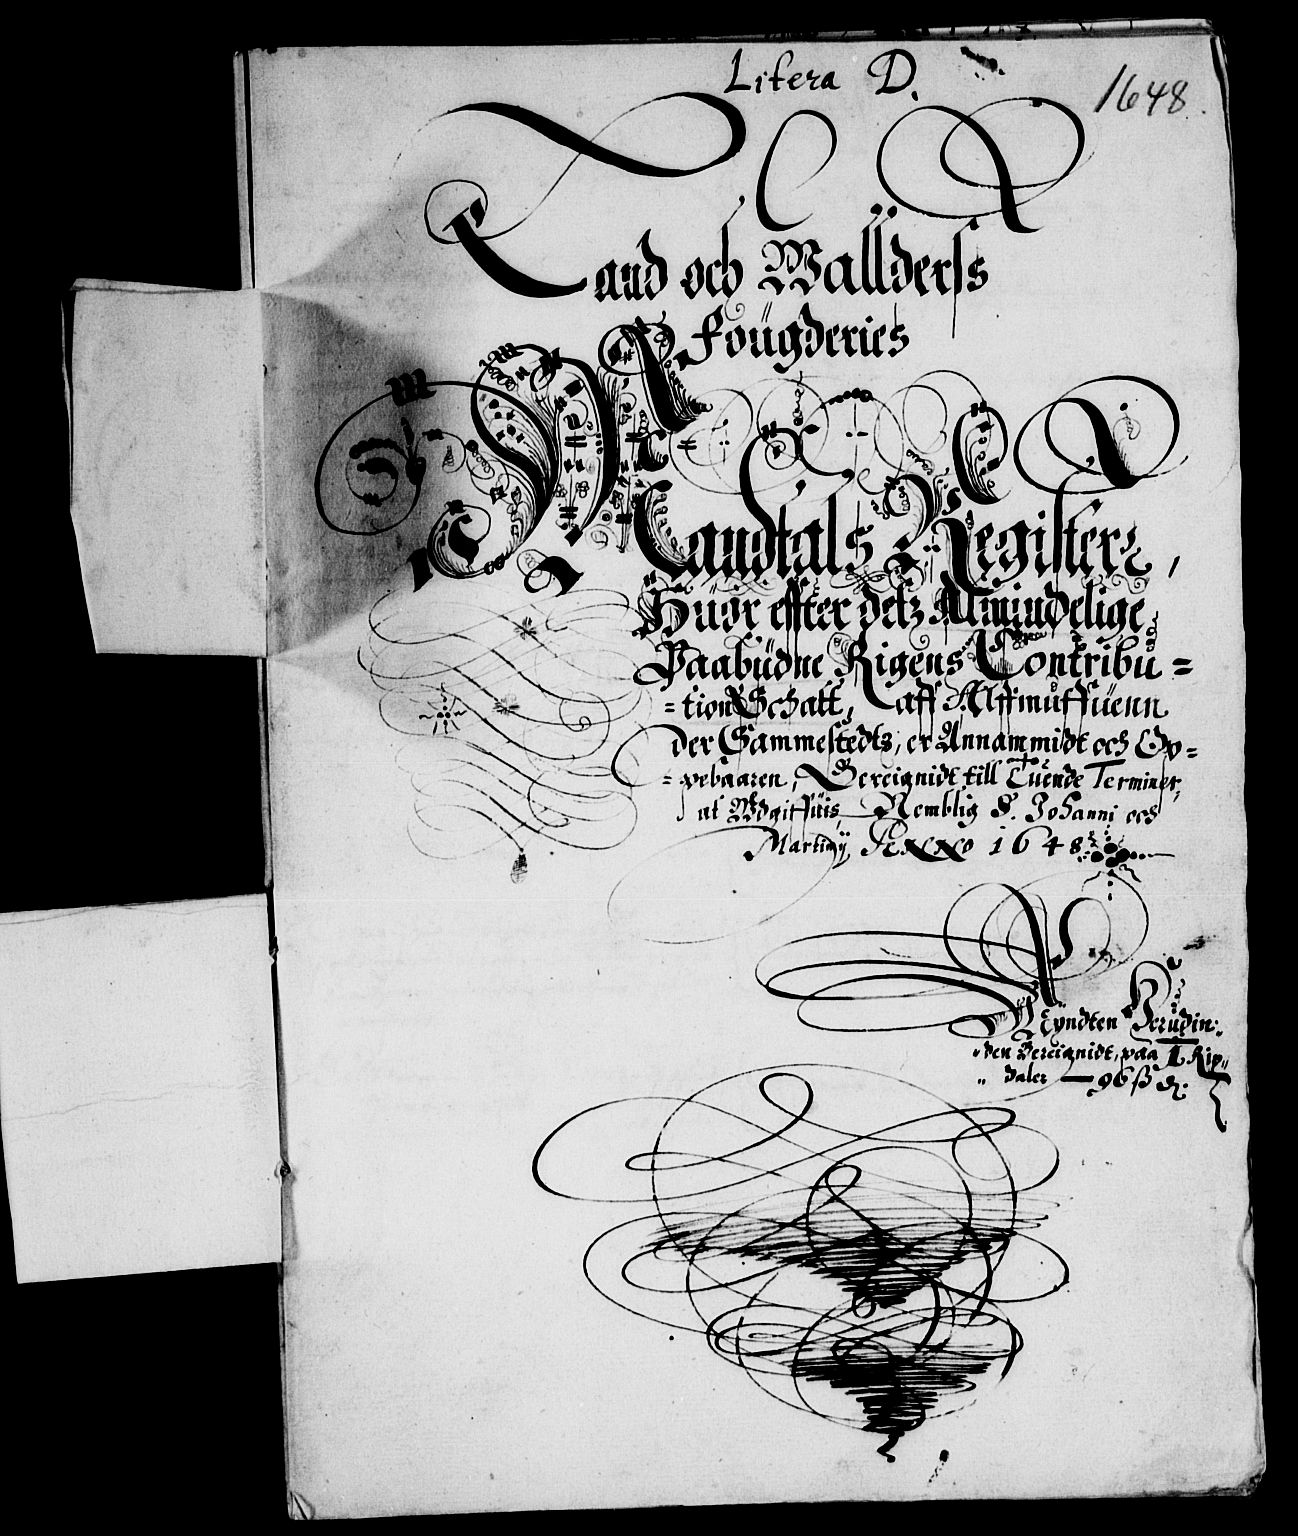 Litera D.
1648.
Land och Wallderss
Foügderies
Mandtals Register,
Huor effter detz Almindelige
Paabüdne Rigens Contribu=
=tion Schatt, aff Allmuffuenn
der Sammestedtz, er Annammidt och Op=
=pebaaren, Bereignidt till Tuende Terminer,
at Wdgiffuis, Nemblig S. Johanni och
Martinij Anno 1648
Myndten Herudin:
den Bereignidt, paa 1 Rix
daler — 96 ß d: